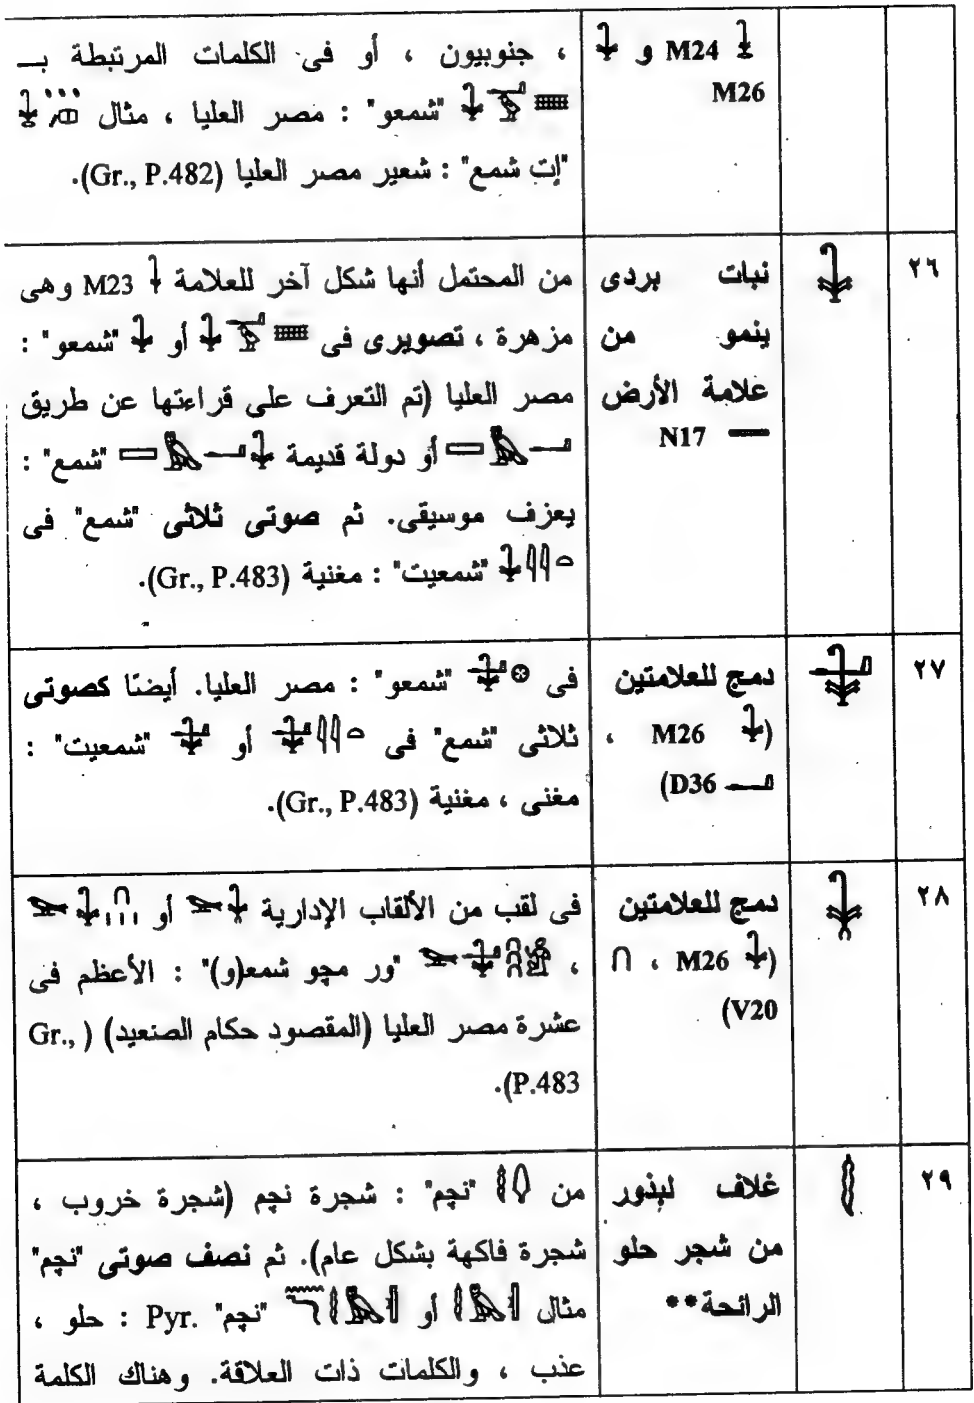 M24 و
M26
، جنوبيون ، أو فى الكلمات المرتبطة بـ
"شمعو" : مصر العليا ، مثال
"إت شمع" : شعير مصر العليا (Gr., P.482).
٢٦
نبات بردى
ينمو من
علامة الأرض
N17
من المحتمل أنها شكل آخر للعلامة M23 وهى
مزهرة ، تصويرى فى أو "شمعو" :
مصر العليا (تم التعرف على قراءتها عن طريق
أو دولة قديمة "شمع" :
يعزف موسيقى. ثم صوتى ثلاثى "شمع" فى
"شمعيت" : مغنية (Gr., P.483).
٢٧
دمج للعلامتين
(M26 ،
D36)
فى "شمعو" : مصر العليا. أيضًا كصوتى
ثلاثى "شمع" فى أو "شمعيت" :
مغنى ، مغنية (Gr., P.483).
٢٨
دمج للعلامتين
(M26 ،
V20)
فى لقب من الألقاب الإدارية أو
، "ور مچو شمع(و)" : الأعظم فى
عشرة مصر العليا (المقصود حكام الصنعيد) (Gr.,
P.483).
٢٩
غلاف لبذور
من شجر حلو
الرائحة**
من "نچم" : شجرة نچم (شجرة خروب ،
شجرة فاكهة بشكل عام). ثم نصف صوتى "نچم"
مثال أو "نچم" Pyr. : حلو ،
عذب ، والكلمات ذات العلاقة. وهناك الكلمة